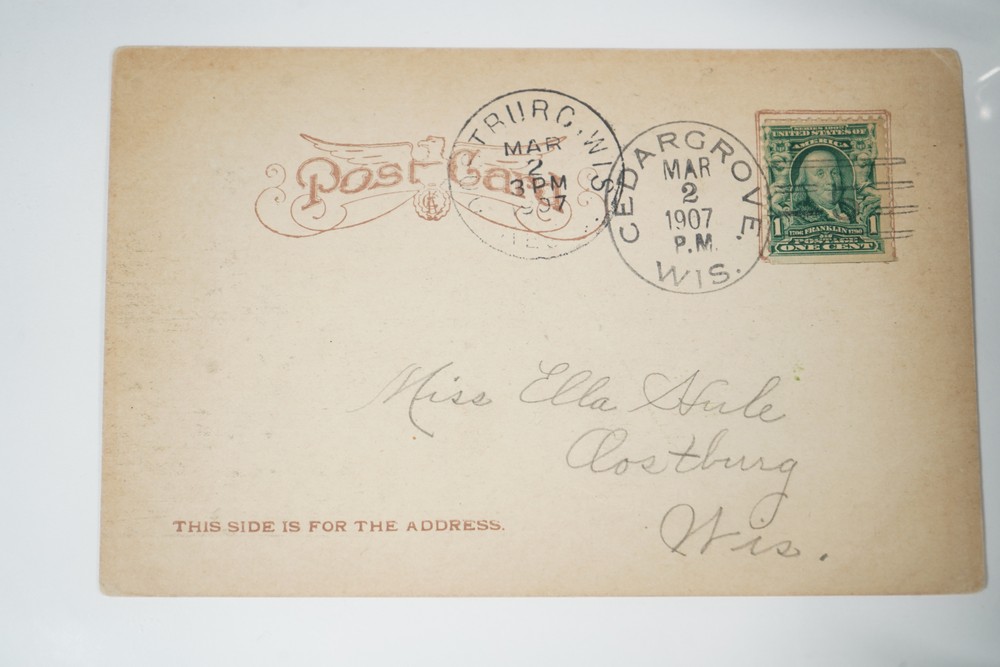 Post Card
TBURG, WIS
MAR
2
3 PM
1907
CEDARGROVE.
MAR
2
1907
P.M.
WIS.
SERIES 1902
UNITED STATES OF
AMERICA
1 1
1706 FRANKLIN 1790
POSTAGE
ONE CENT
Miss Ella Hule
Oostburg
Wis.
THIS SIDE IS FOR THE ADDRESS.